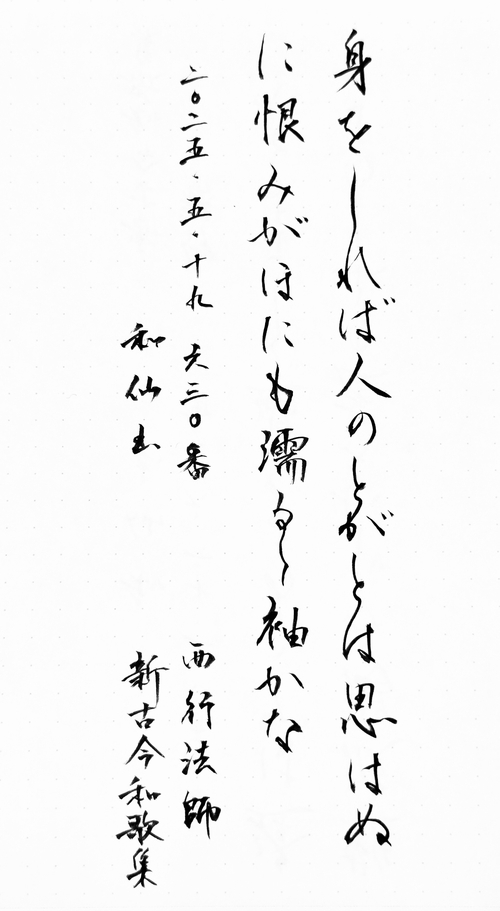 身をしれば人のとがとは思はぬ
に恨みがほにも濡るゝ袖かな
二〇二五、五、十九 六三〇番
西行法師
和仙書
新古今和歌集